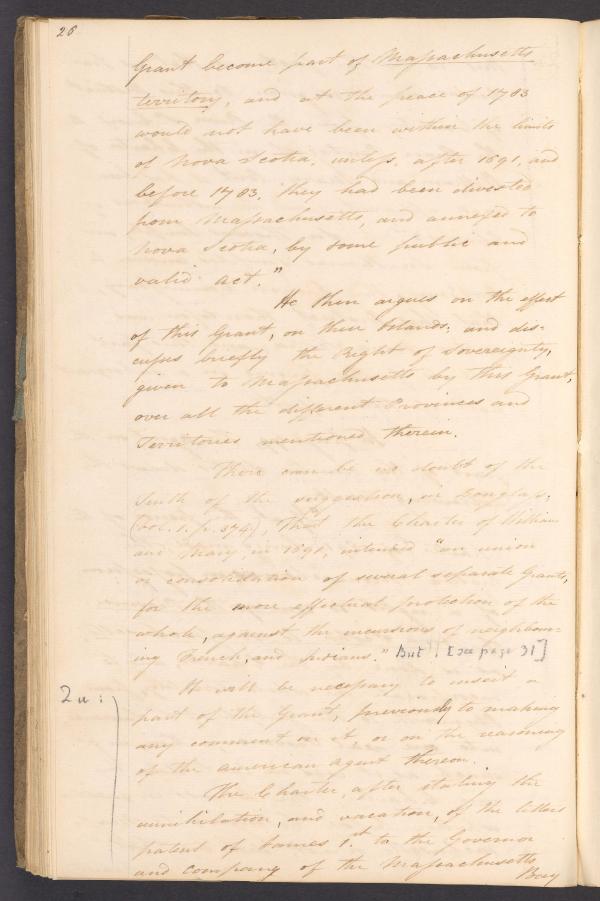 28
Grant become part of Massachusetts
territory, and at the peace of 1783
would not have been within the limits
of Nova Scotia, unless, after 1691, and
before 1783, they had been divested
from Massachusetts, and annexed to
Nova Scotia, by some public and
valid act."
He then argues on the effect
of this Grant, on their Islands; and dis-
cusses briefly the Right of Sovereignty,
given to Massachusetts by this Grant,
over all the different Provinces and
Territories mentioned therein.
There can be no doubt of the
truth of the suggestion, in Douglass,
(vol. 1. p. 374), that the Charter of William
and Mary, in 1691, intended "an union
or consolidation of several separate Grants,
for the more effectual protection of the
whole, against the incursions of neighbour-
ing French, and Indians." But! [see page 31]
It will be necessary to insert a
2u:
part of the Grant, previously to making
any comment on it, or on the reasoning
of the american agent thereon.
The Charter, after stating the
annihilation, and vacation, of the letters
patent of James 1.st to the Governor
and Company of the Massachusetts
Bay